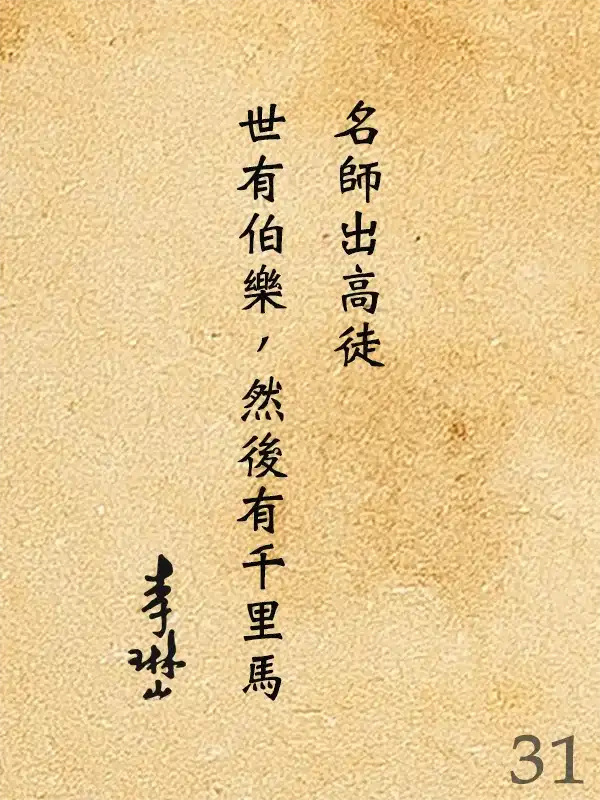 名師出高徒
世有伯樂，然後有千里馬
李琳山
31